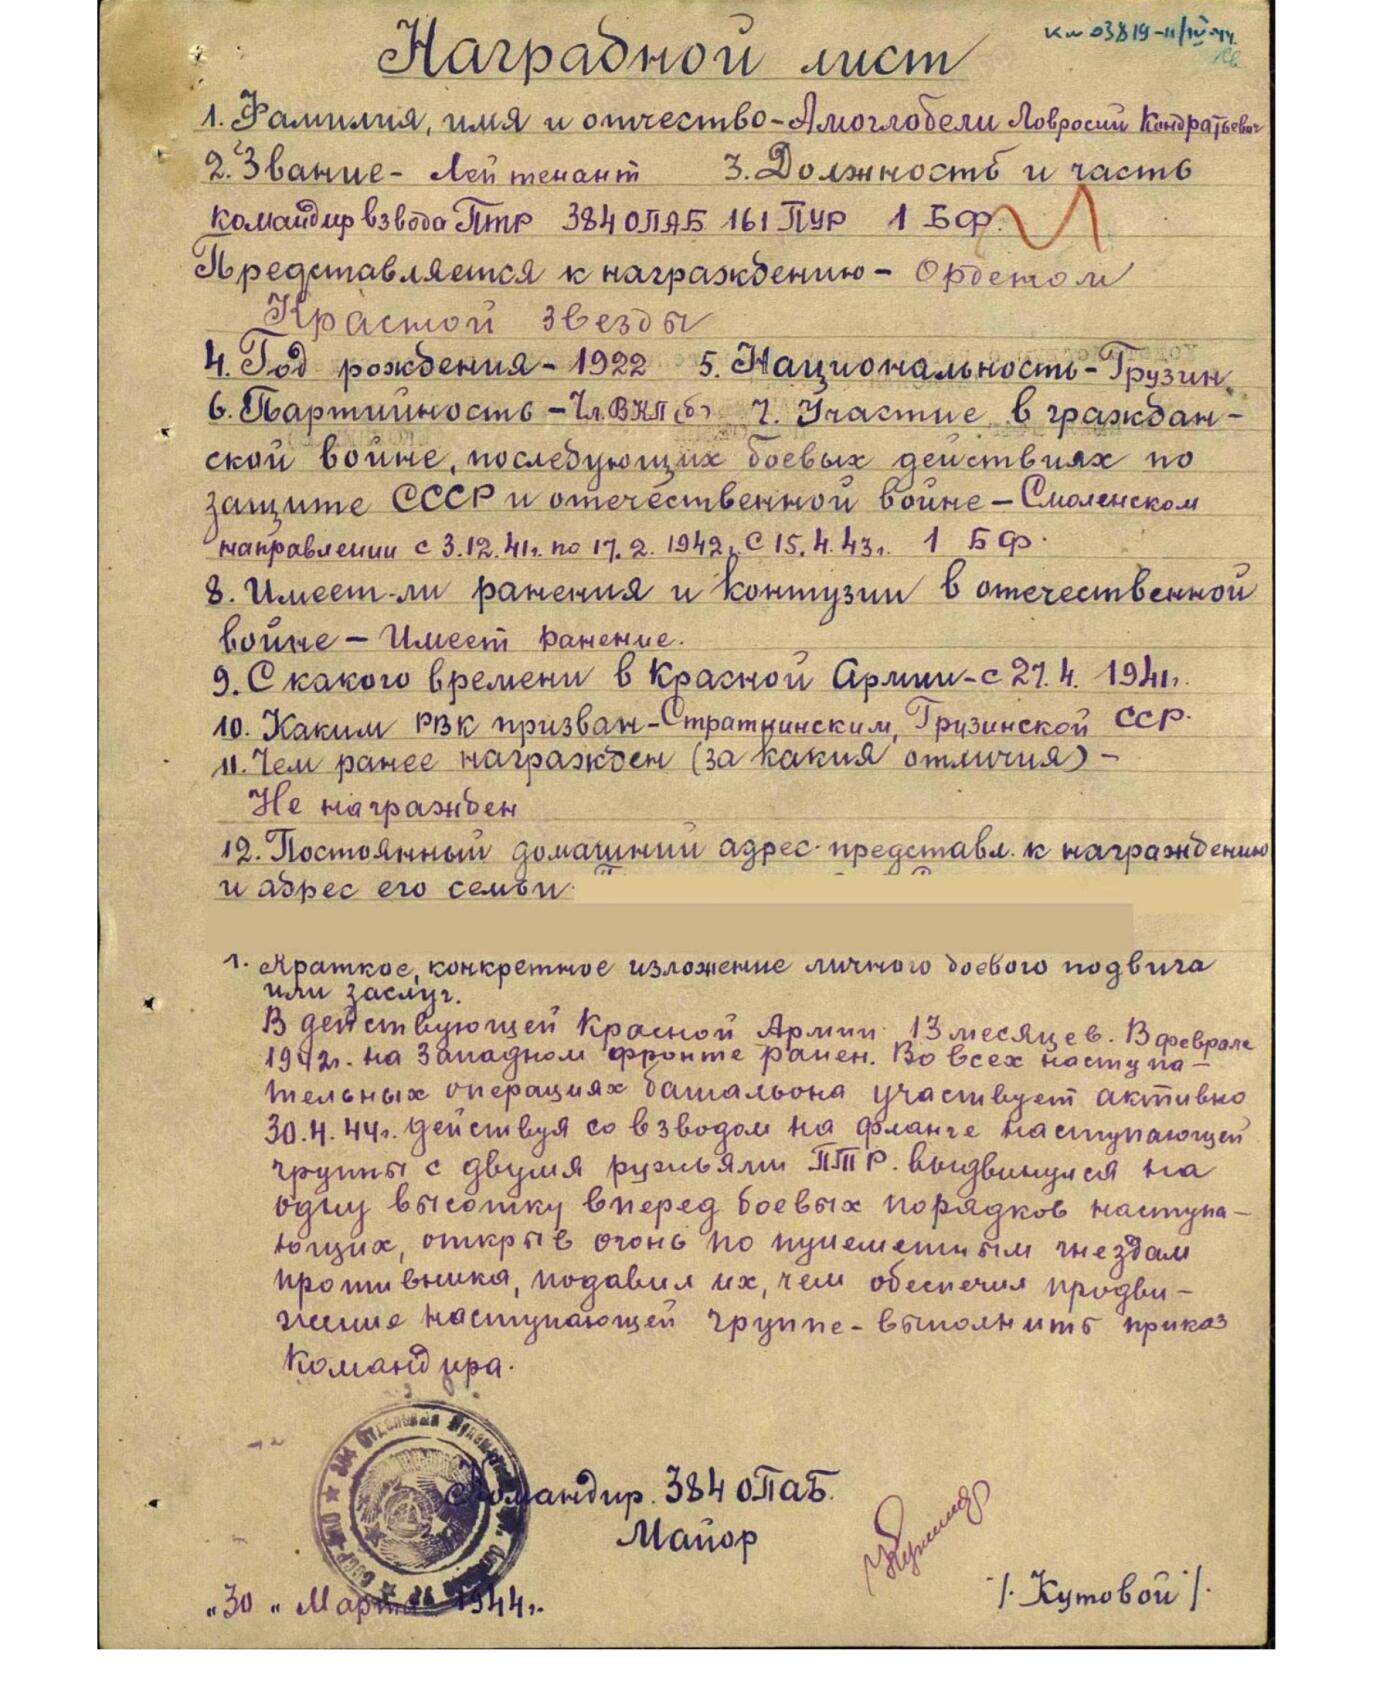 Наградной лист
1. Фамилия, имя и отчество - Амоглобели Ловросий Кондратьевич
2. Звание - Лейтенант 3. Должность и часть
командир взвода ПТР 384 ОПАБ 161 ПУР 1 БФ.
Представляется к награждению - Орденом
Красной звезды
4. Год рождения - 1922 5. Национальность - Грузин
6. Партийность - Чл. ВКП(б) 7. Участие в граждан-
ской войне, последующих боевых действиях по
защите СССР и отечественной войне - Смоленском
направлении с 3.12.41г. по 17.2.1942г. С 15.4.43г. 1 БФ.
8. Имеет-ли ранения и контузии в отечественной
войне - Имеет ранение.
9. С какого времени в Красной Армии - с 27.4.1941г.
10. Каким РВК призван - Грузинской ССР.
11. Чем ранее награжден (за какия отличия) -
Не награжден
12. Постоянный домашний адрес представл. к награждению
и адрес его семьи
1. Краткое, конкретное изложение личного боевого подвига
или заслуг.
В действующей Красной Армии 13 месяцев. В феврале
1942г. на Западном фронте ранен. Во всех наступа-
тельных операциях батальона участвует активно
30.4.44г. действуя со взводом на фланге наступающей
группы с двумя ружьями ПТР. выдвинулся на
одну высотку вперед боевых порядков наступа-
ющих, открыв огонь по пулеметным гнездам
противника, подавил их, чем обеспечил продви-
жение наступающей группе - выполнить приказ
командира.
Командир 384 ОПаБ.
Майор
/. Кутовой /.
"30" Марта 1944г.